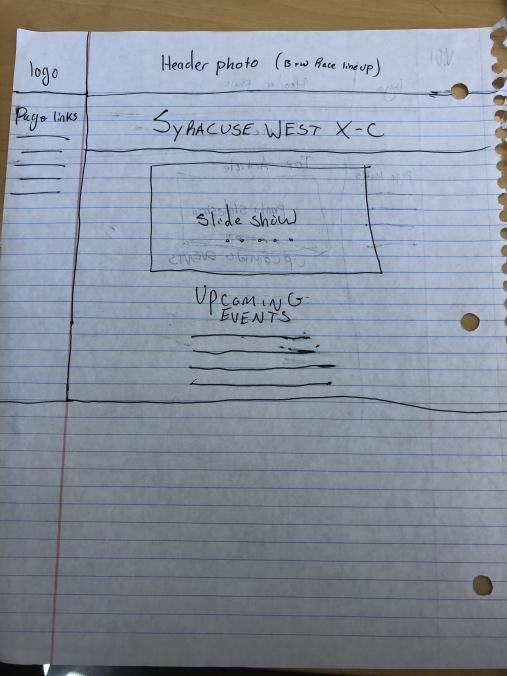 logo
Header photo (B+W Race lineup)
Page links
SYRACUSE WEST X-C
Slide show
UPCOMING
EVENTS